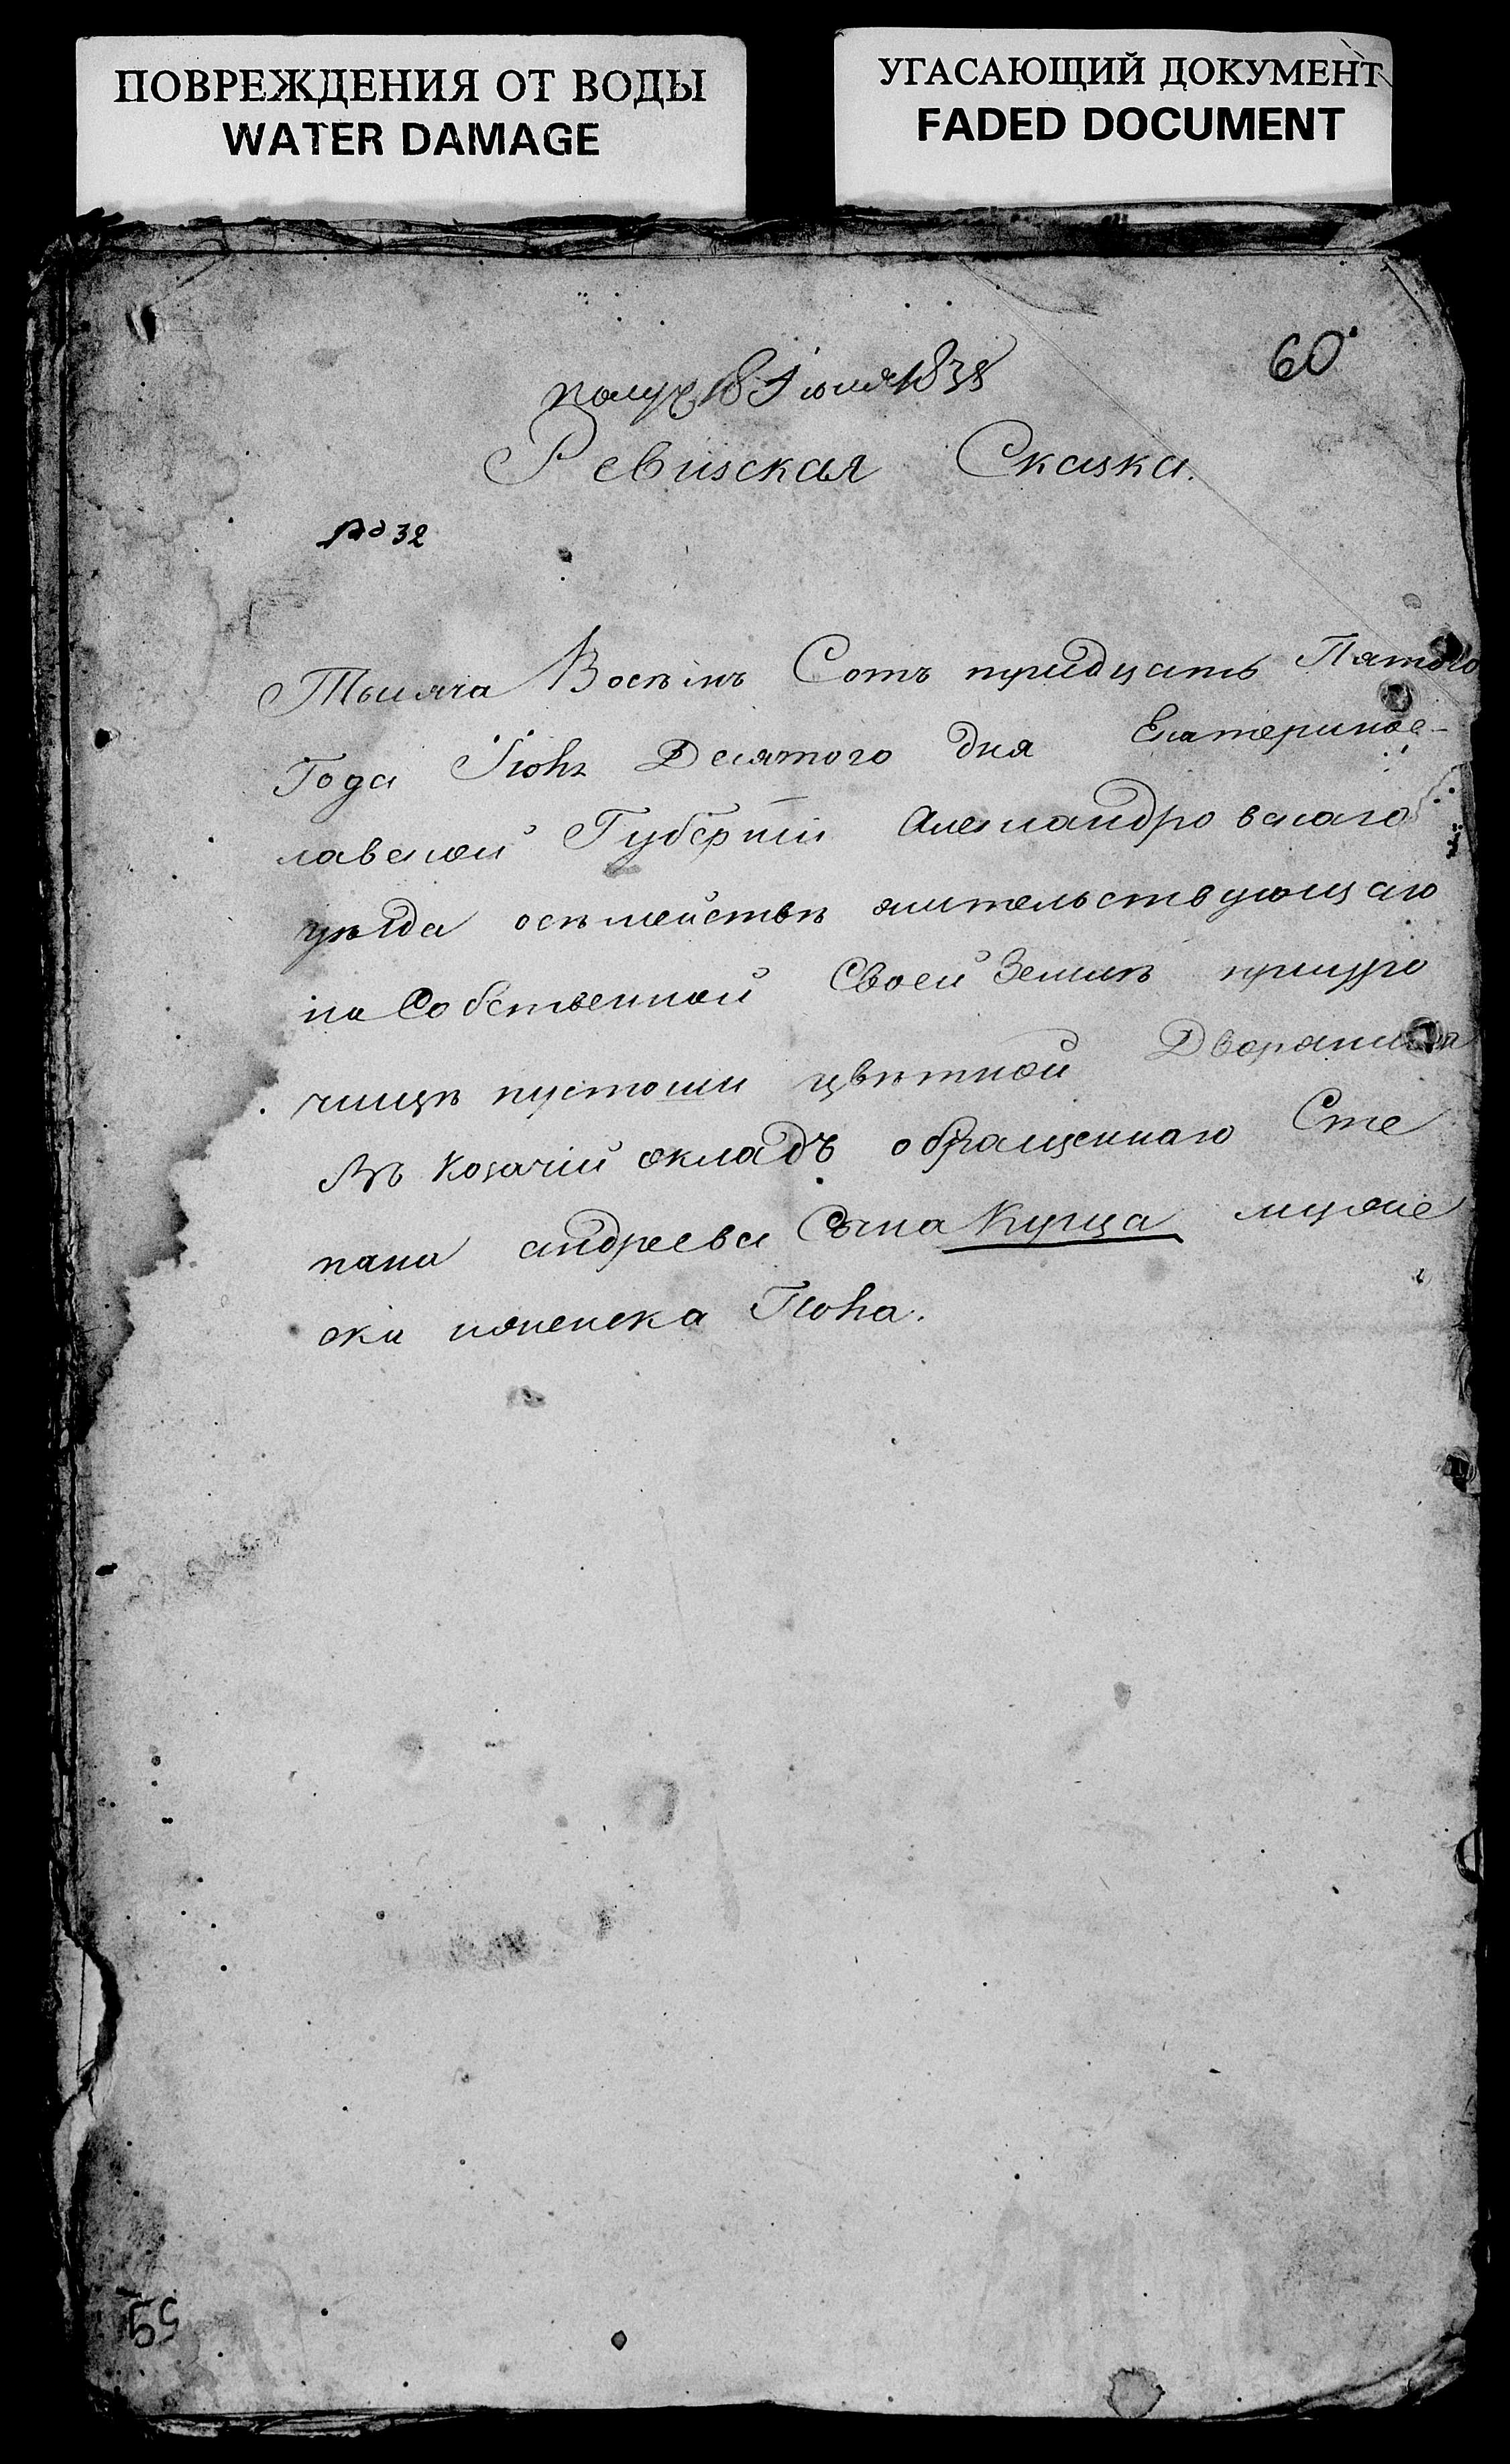 ПОВРЕЖДЕНИЯ ОТ ВОДЫ
WATER DAMAGE
УГАСАЮЩИЙ ДОКУМЕНТ
FADED DOCUMENT
60
получ 18 Іюня 1835
Ревизская Сказка.
№ 32
Тысяча Восѣмъ Сотъ тридцать Пятого
Года Іюня Десятого дня Екатеринос-
лавской Губерніи Александровскаго
уѣзда осѣмействѣ жительствующаго
на Собственной Своей Землѣ приуро
чищѣ пустоши цвѣтной Дворянина
Въ козачій окладъ обращеннаго Сте
пана андреева Сына Куцца мужес
ска иженска Пола.
59